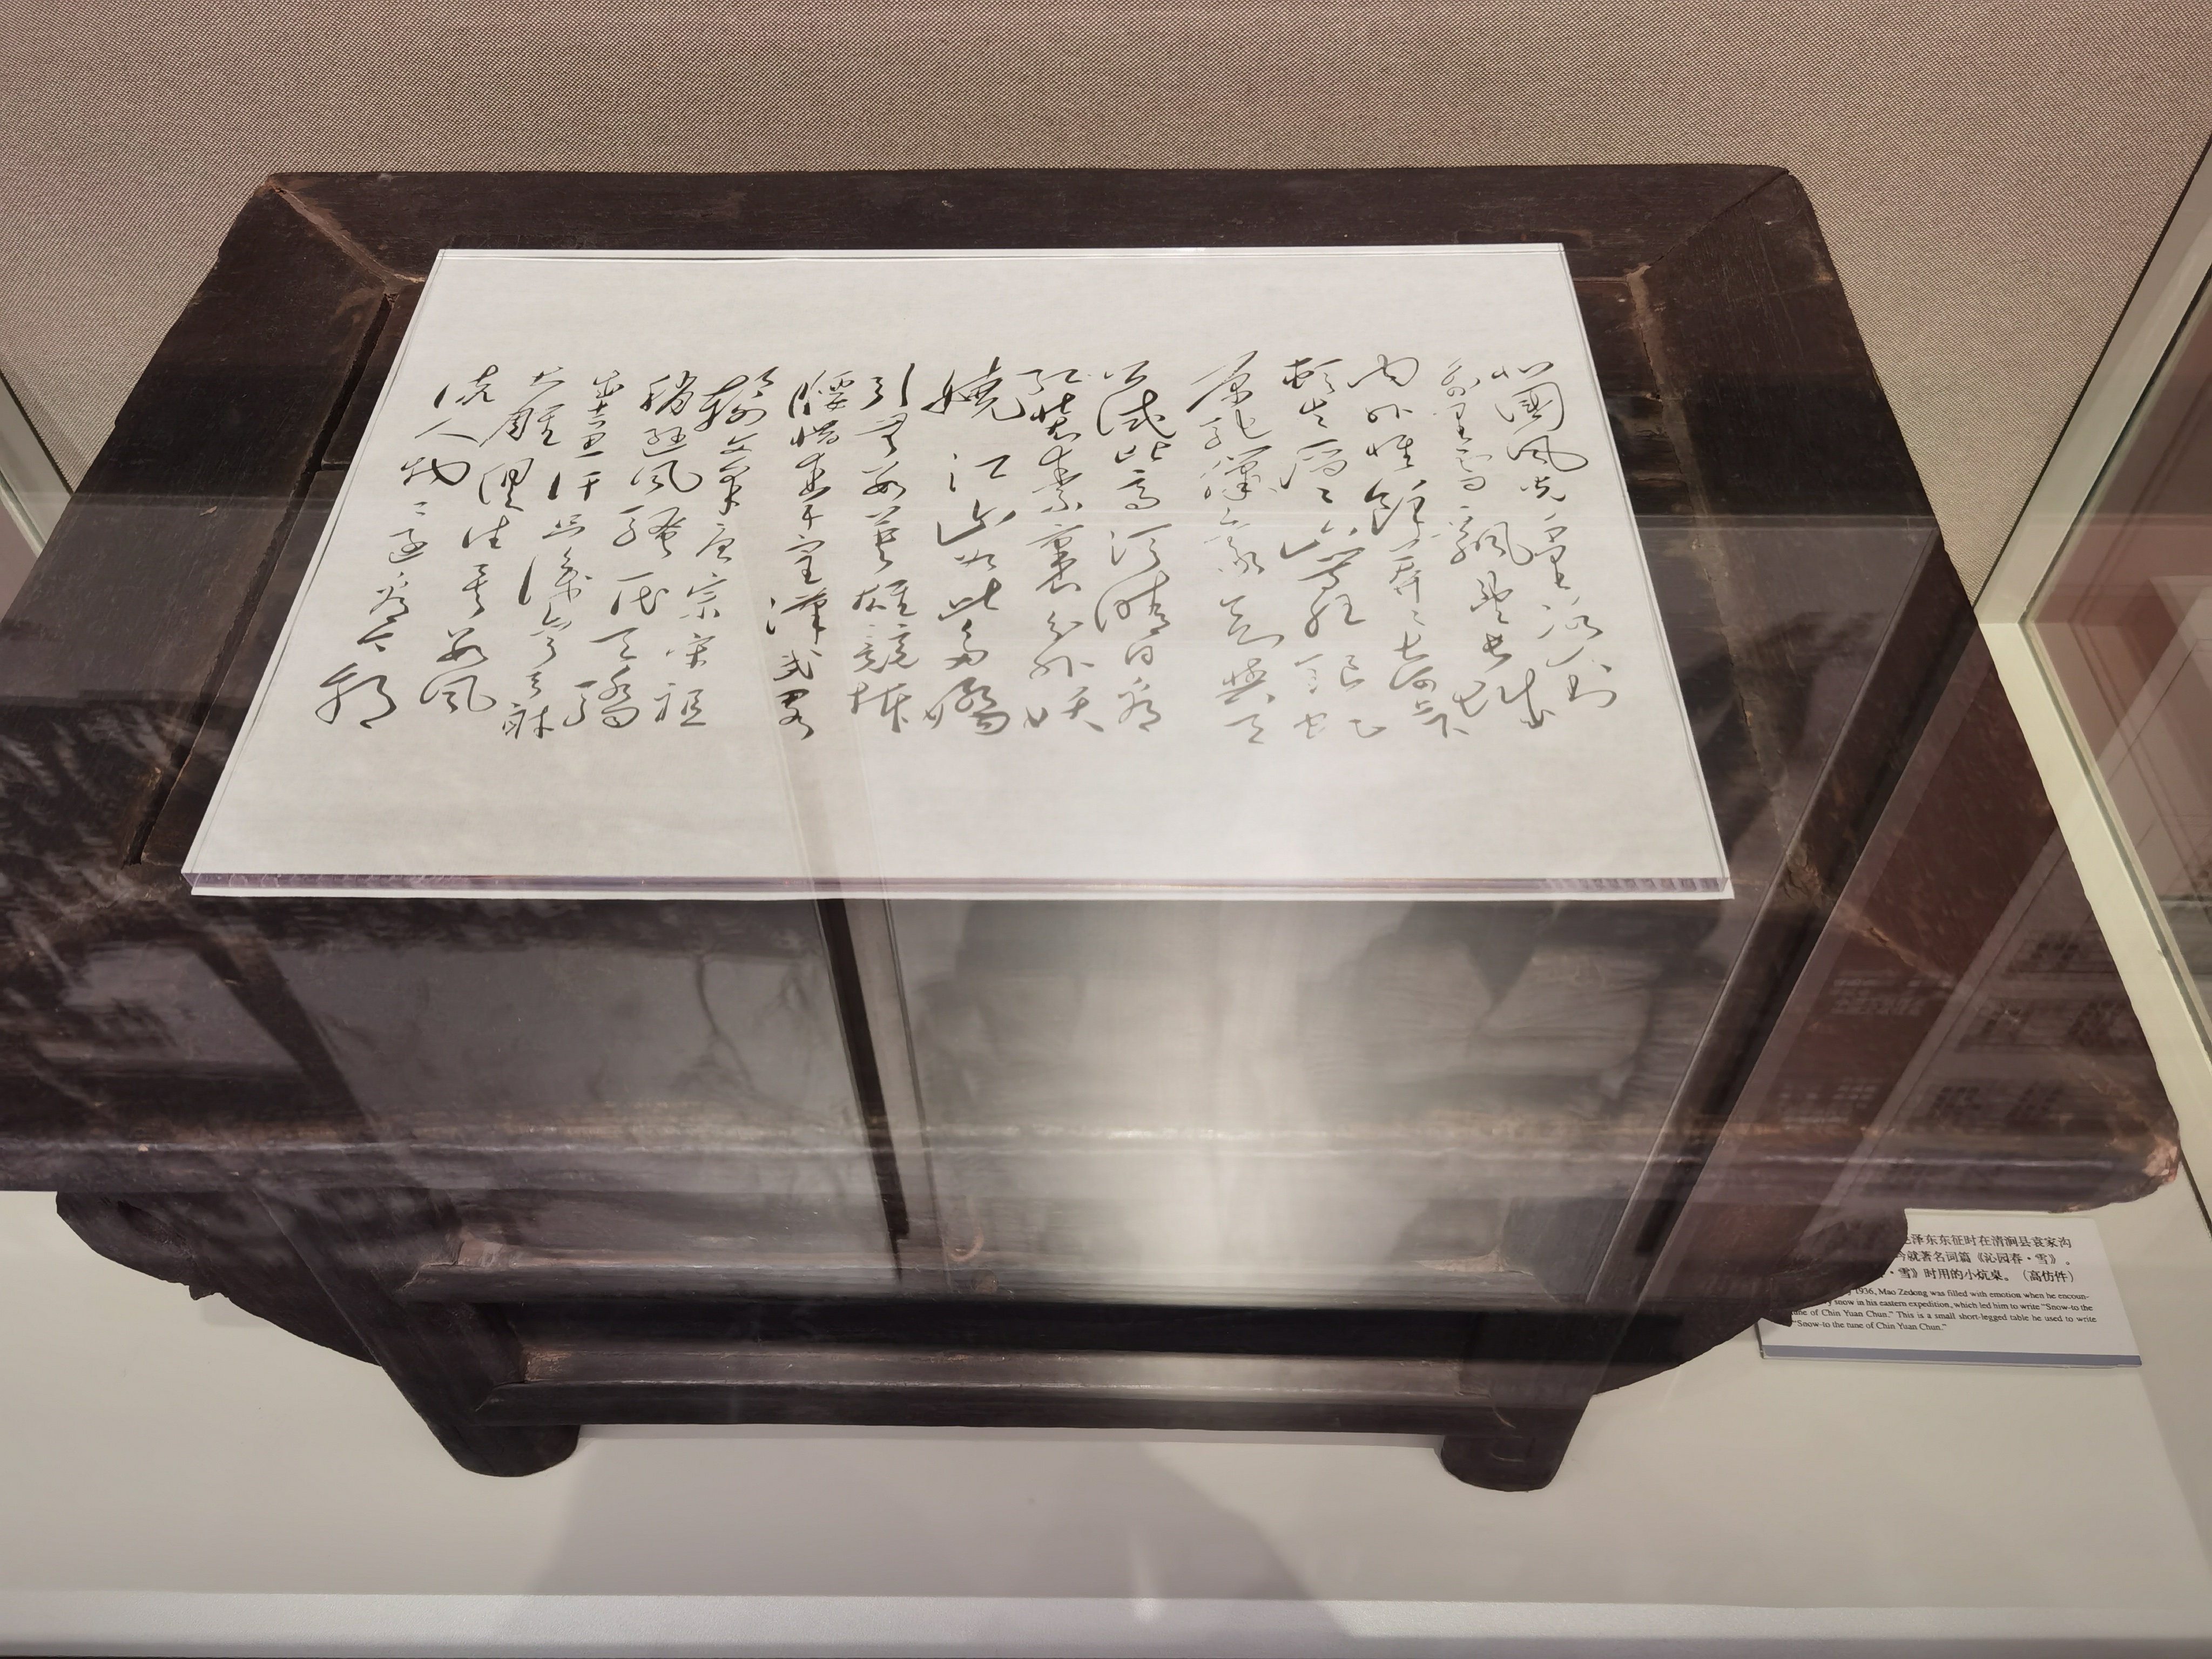 北國風光千里冰封
萬里雪飄望長城
內外惟餘莽莽大河上下
頓失滔滔山舞銀蛇
原馳蠟象欲與天
公試比高須晴日看
紅裝素裹分外妖
嬈江山如此多嬌
引無數英雄競折
腰惜秦皇漢武略
輸文采唐宗宋祖
稍遜風騷一代天驕
成吉思汗只識彎弓射
大雕俱往矣數風
流人物還看今朝
泽东东征时在清涧县袁家沟
就著名词篇《沁园春·雪》。
·雪》时用的小炕桌。（高仿件）
1936, Mao Zedong was filled with emotion when he encoun-
snow in his eastern expedition, which led him to write "Snow-to the
tune of Chin Yuan Chun." This is a small short-legged table he used to write
"Snow-to the tune of Chin Yuan Chun."